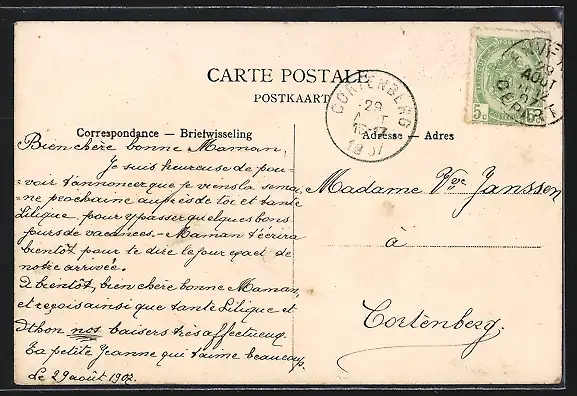 CARTE POSTALE
POSTKAART
Correspondance — Briefwisseling
Adresse — Adres
CORTENBERG
29
AOUT
1907
29
AOUT
DEPART
5c
Bien chère bonne Maman,
Je suis heureuse de pou-
voir t'annoncer que je viens la semai-
ne prochaine auprès de toi et tante
Lilique pour y passer quelques bons
jours de vacances. - Maman t'écrira
bientôt pour te dire le jour exact de
notre arrivée.
À bientôt, bien chère bonne Maman,
et reçois ainsi que tante Lilique et
nos baisers très affectueux
Ta petite Jeanne qui t'aime beaucoup.
Le 29 août 1907.
Madame Vve Janssen
à
Cortenberg